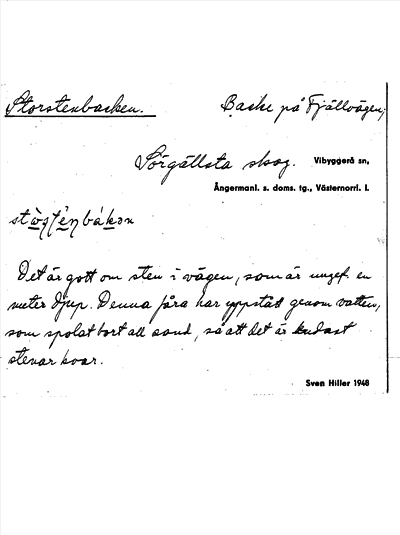 Storstenbacken.
Backe på Fjällvägen,
Sörgällsta skog. Vibyggerå sn,
Ångermanl. s. doms. tg., Västernorrl. l.
Det är gott om sten i vägen, som är ungef. en
meter djup. Denna fåra har uppstått genom vatten,
som spolat bort all sand, så att det är endast
stenar kvar.
Sven Hiller 1948